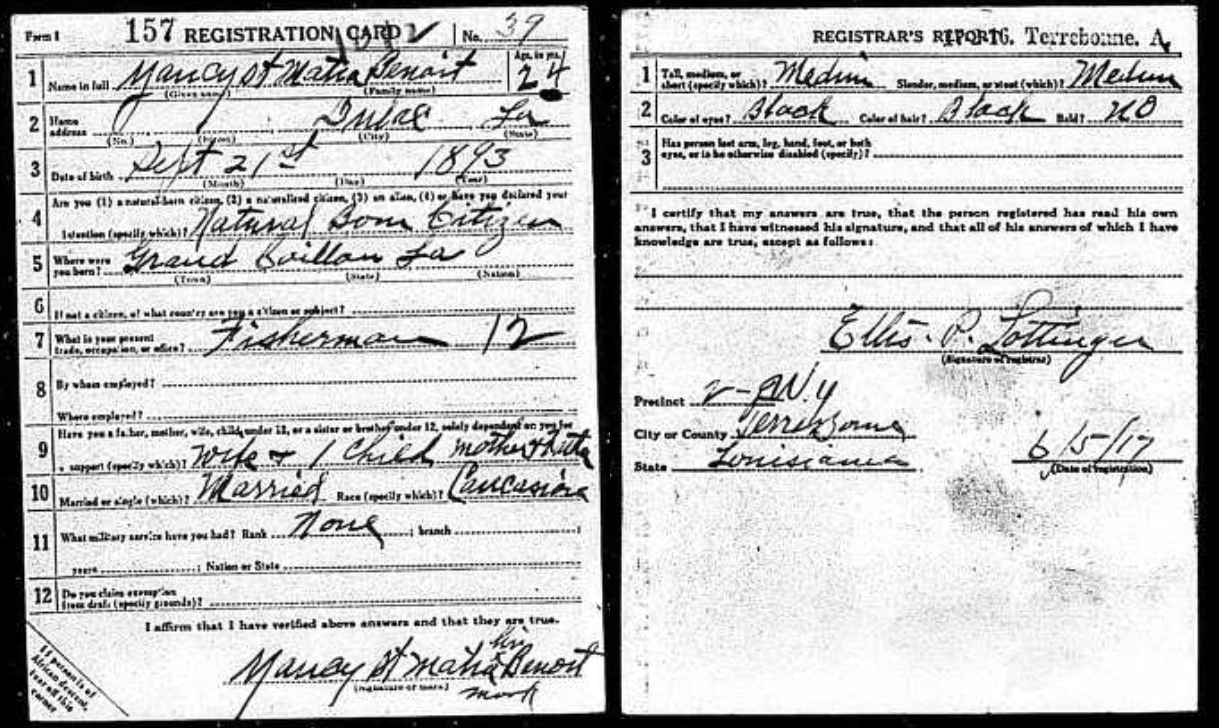 Form 1 157 REGISTRATION CARD No. 39
1 Name in full Yancy St Matia Benoit Age, in yrs. 24
(Given name) (Family name)
2 Home address Dulac La
(No.) (Street) (City) (State)
3 Date of birth Sept 21st 1893
(Month) (Day) (Year)
Are you (1) a natural-born citizen, (2) a naturalized citizen, (3) an alien, (4) or have you declared your
4 intention (specify which)? Natural Born Citizen
5 Where were you born? Grand Caillou La
(Town) (State) (Nation)
6 If not a citizen, of what country are you a citizen or subject?
7 What is your present trade, occupation, or office? Fisherman 12
8 By whom employed?
Where employed?
Have you a father, mother, wife, child under 12, or a sister or brother under 12, solely dependent on you for
9 support (specify which)? Wife + 1 Child mother +
10 Married or single (which)? Married Race (specify which)? Caucasion
11 What military service have you had? Rank None ; branch ;
years ; Nation or State
12 Do you claim exemption from draft (specify grounds)?
I affirm that I have verified above answers and that they are true.
his
Yancy St Matia Benoit
(Signature or mark) mark
If person is of
African descent,
tear off this
corner
REGISTRAR'S REPORT Terrebonne. A
1 Tall, medium, or short (specify which)? Medium Slender, medium, or stout (which)? Medium
2 Color of eyes? Black Color of hair? Black Bald? NO
3 Has person lost arm, leg, hand, foot, or both eyes, or is he otherwise disabled (specify)?
I certify that my answers are true, that the person registered has read his own
answers, that I have witnessed his signature, and that all of his answers of which I have
knowledge are true, except as follows:
Ellis. P. Lottinger
(Signature of registrar)
Precinct 2
City or County Terrebonne
State Louisiana 6/5/17
(Date of registration)